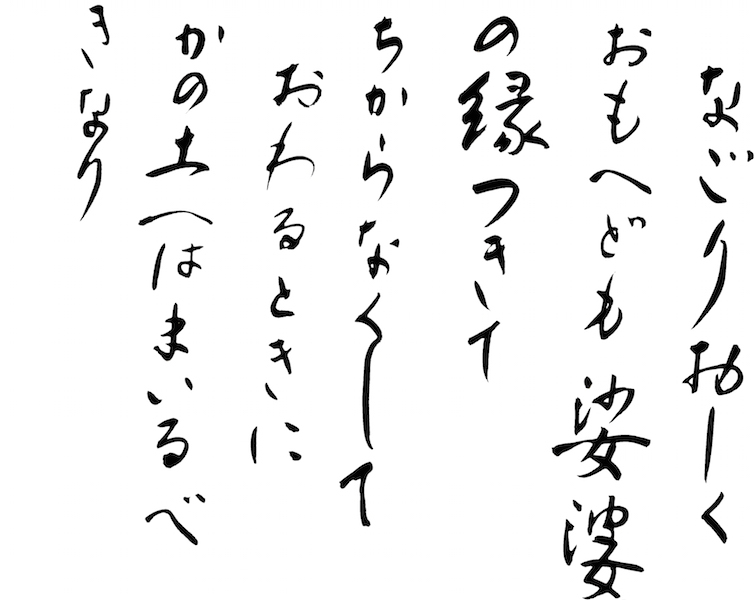 なごりおしく
おもへども娑婆
の縁つきて
ちからなくして
おわるときに
かの土へはまいるべ
きなり